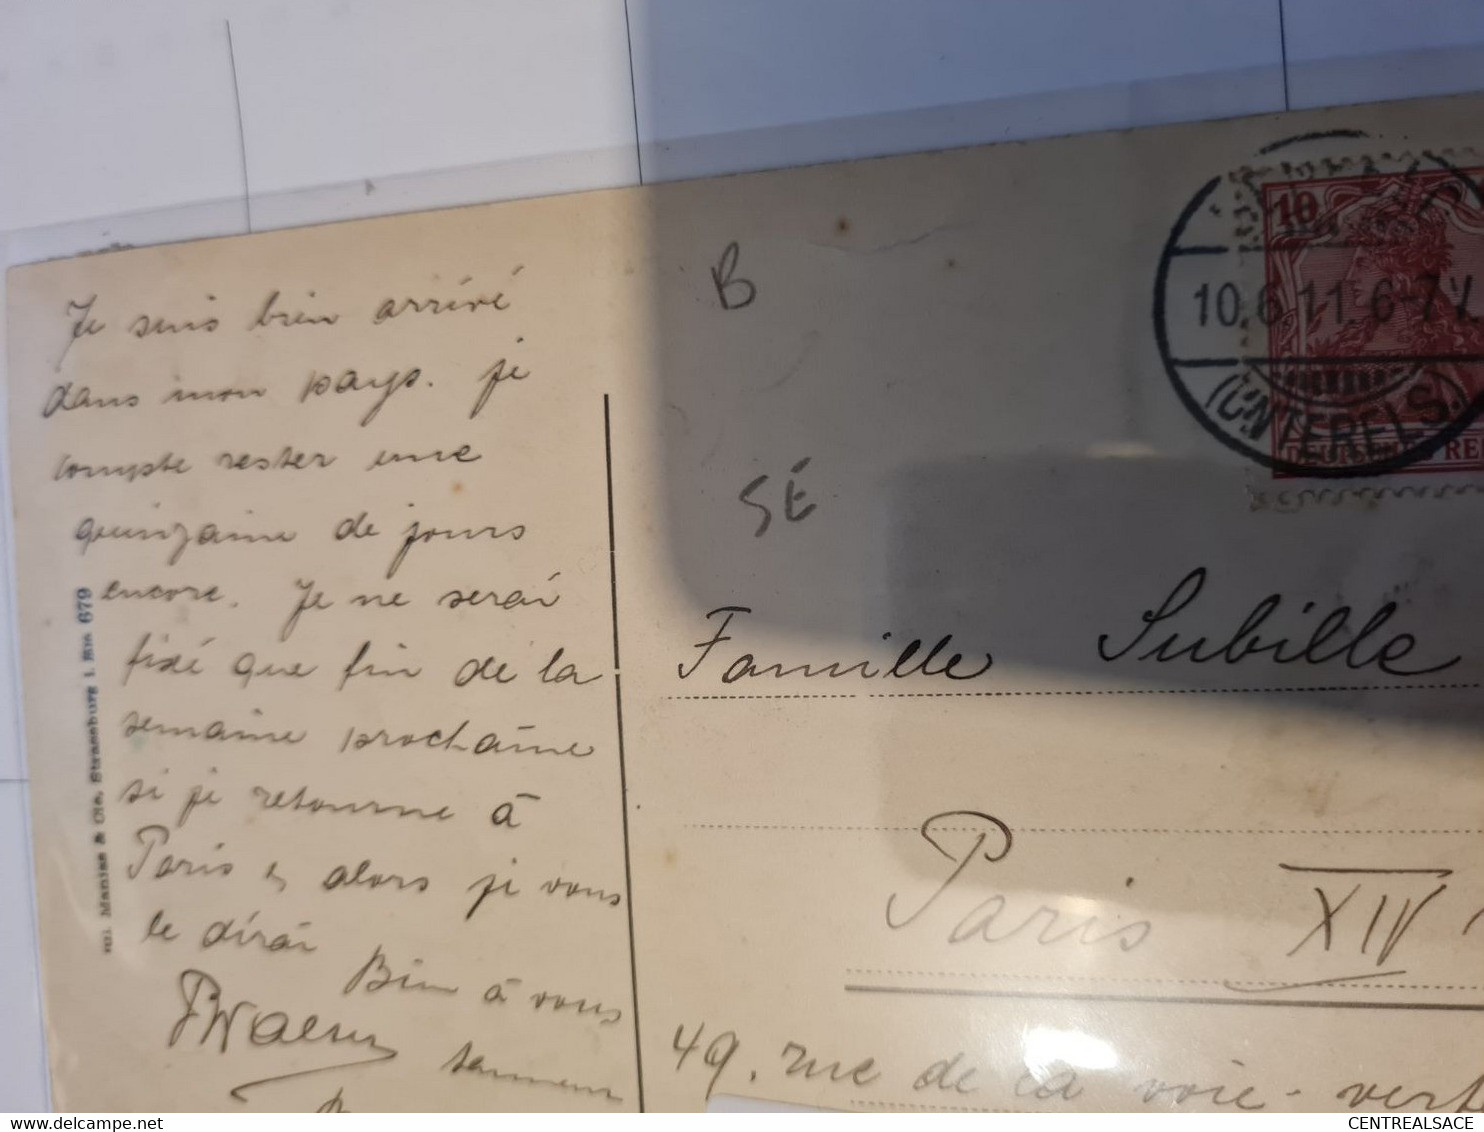 Je suis bien arrivé
dans mon pays. je
compte rester une
quinzaine de jours
encore. Je ne serai
fixé que fin de la
semaine prochaine
si je retourne à
Paris et alors je vous
le dirai
Bien à vous
B
SÉ
10
10.6.11. 6-7 V.
(UNTERELS.)
DEUTSCHES REI
Famille Subille
Paris XIV
49. rue de la voie-verte
& Cie, Strassburg i. Els 679
CENTREALSACE